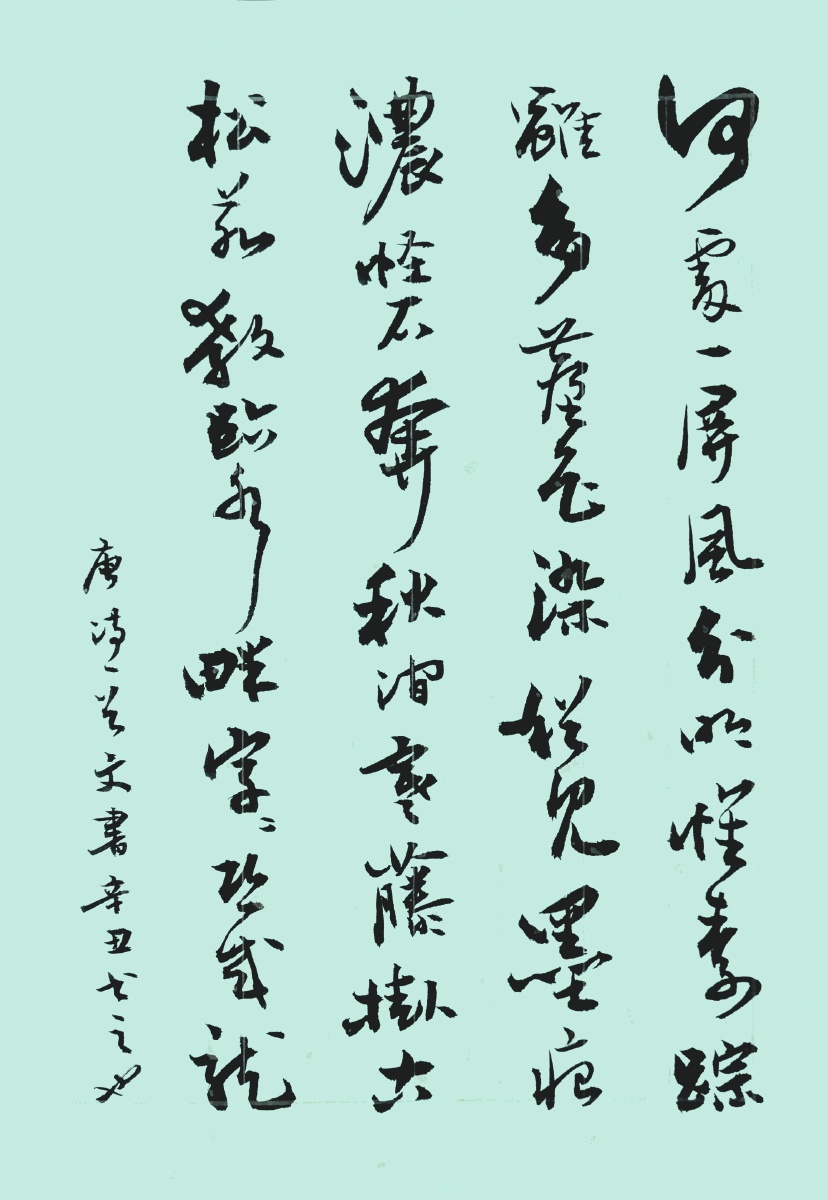 何處一屏風分明懷素踪
雖多塵色染猶見墨痕
濃怪石奔秋澗寒藤掛古
松若教臨水畔字〻恐成龍
唐詩一首文書辛丑